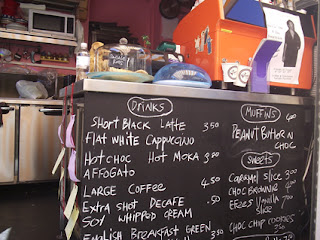 DRINKS
SHORT BLACK LATTE 350
FLAT WHITE CAPPUCCINO
HOT CHOC HOT MOKA 300
AFFOGATO
LARGE COFFEE .50
EXTRA SHOT DECAFE .50
SOY WHIPPED CREAM
ENGLISH BREAKFAST GREEN 350
MUFFINS 400
PEANUT BUTTER N
CHOC
SWEETS
CARAMEL SLICE 300
CHOC BROWNIE 400
VANILLA
SLICE
CHOC CHIP COOKIES